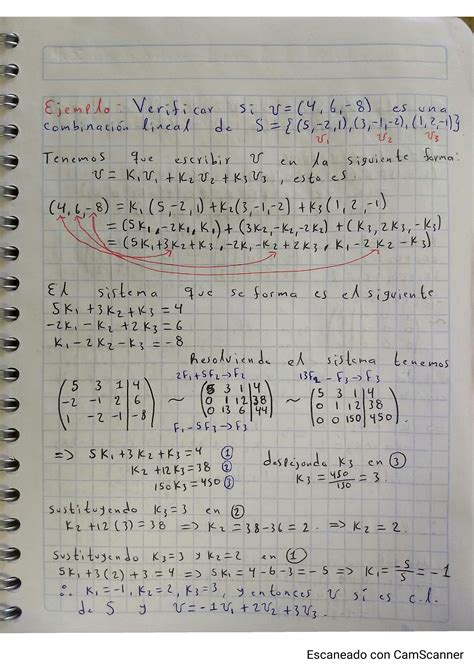 Ejemplo: Verificar si v=(4,6,-8) es una
combinación lineal de S={(5,-2,1),(3,-1,-2),(1,2,-1)}
v₁ v₂ v₃
Tenemos que escribir v en la siguiente forma:
v = K₁v₁ + K₂v₂ + K₃v₃, esto es.
(4,6,-8) = K₁(5,-2,1) + K₂(3,-1,-2) + K₃(1,2,-1)
= (5K₁,-2K₁,K₁) + (3K₂,-K₂,-2K₂) + (K₃,2K₃,-K₃)
= (5K₁+3K₂+K₃, -2K₁-K₂+2K₃, K₁-2K₂-K₃)
El sistema que se forma es el siguiente
5K₁+3K₂+K₃=4
-2K₁-K₂+2K₃=6
K₁-2K₂-K₃=-8
Resolviendo el sistema tenemos
2F₁+5F₂→F₂ 13F₂-F₃→F₃
(5 3 1|4) ~ (5 3 1|4) ~ (5 3 1|4)
(-2 -1 2|6) (0 1 12|38) (0 1 12|38)
(1 -2 -1|-8) (0 13 6|44) (0 0 150|450).
F₁-5F₃→F₃
=> 5K₁+3K₂+K₃=4 ①
K₂+12K₃=38 ② despejando K₃ en ③
150K₃=450 ③ K₃=450/150=3.
Sustituyendo K₃=3 en ②
K₂+12(3)=38 => K₂=38-36=2. => K₂=2.
Sustituyendo K₃=3 y K₂=2 en ①
5K₁+3(2)+3=4 => 5K₁=4-6-3=-5 => K₁=-5/5=-1
∴ K₁=-1, K₂=2, K₃=3, y entonces v sí es c.l.
de S y v=-1v₁+2v₂+3v₃.
Escaneado con CamScanner